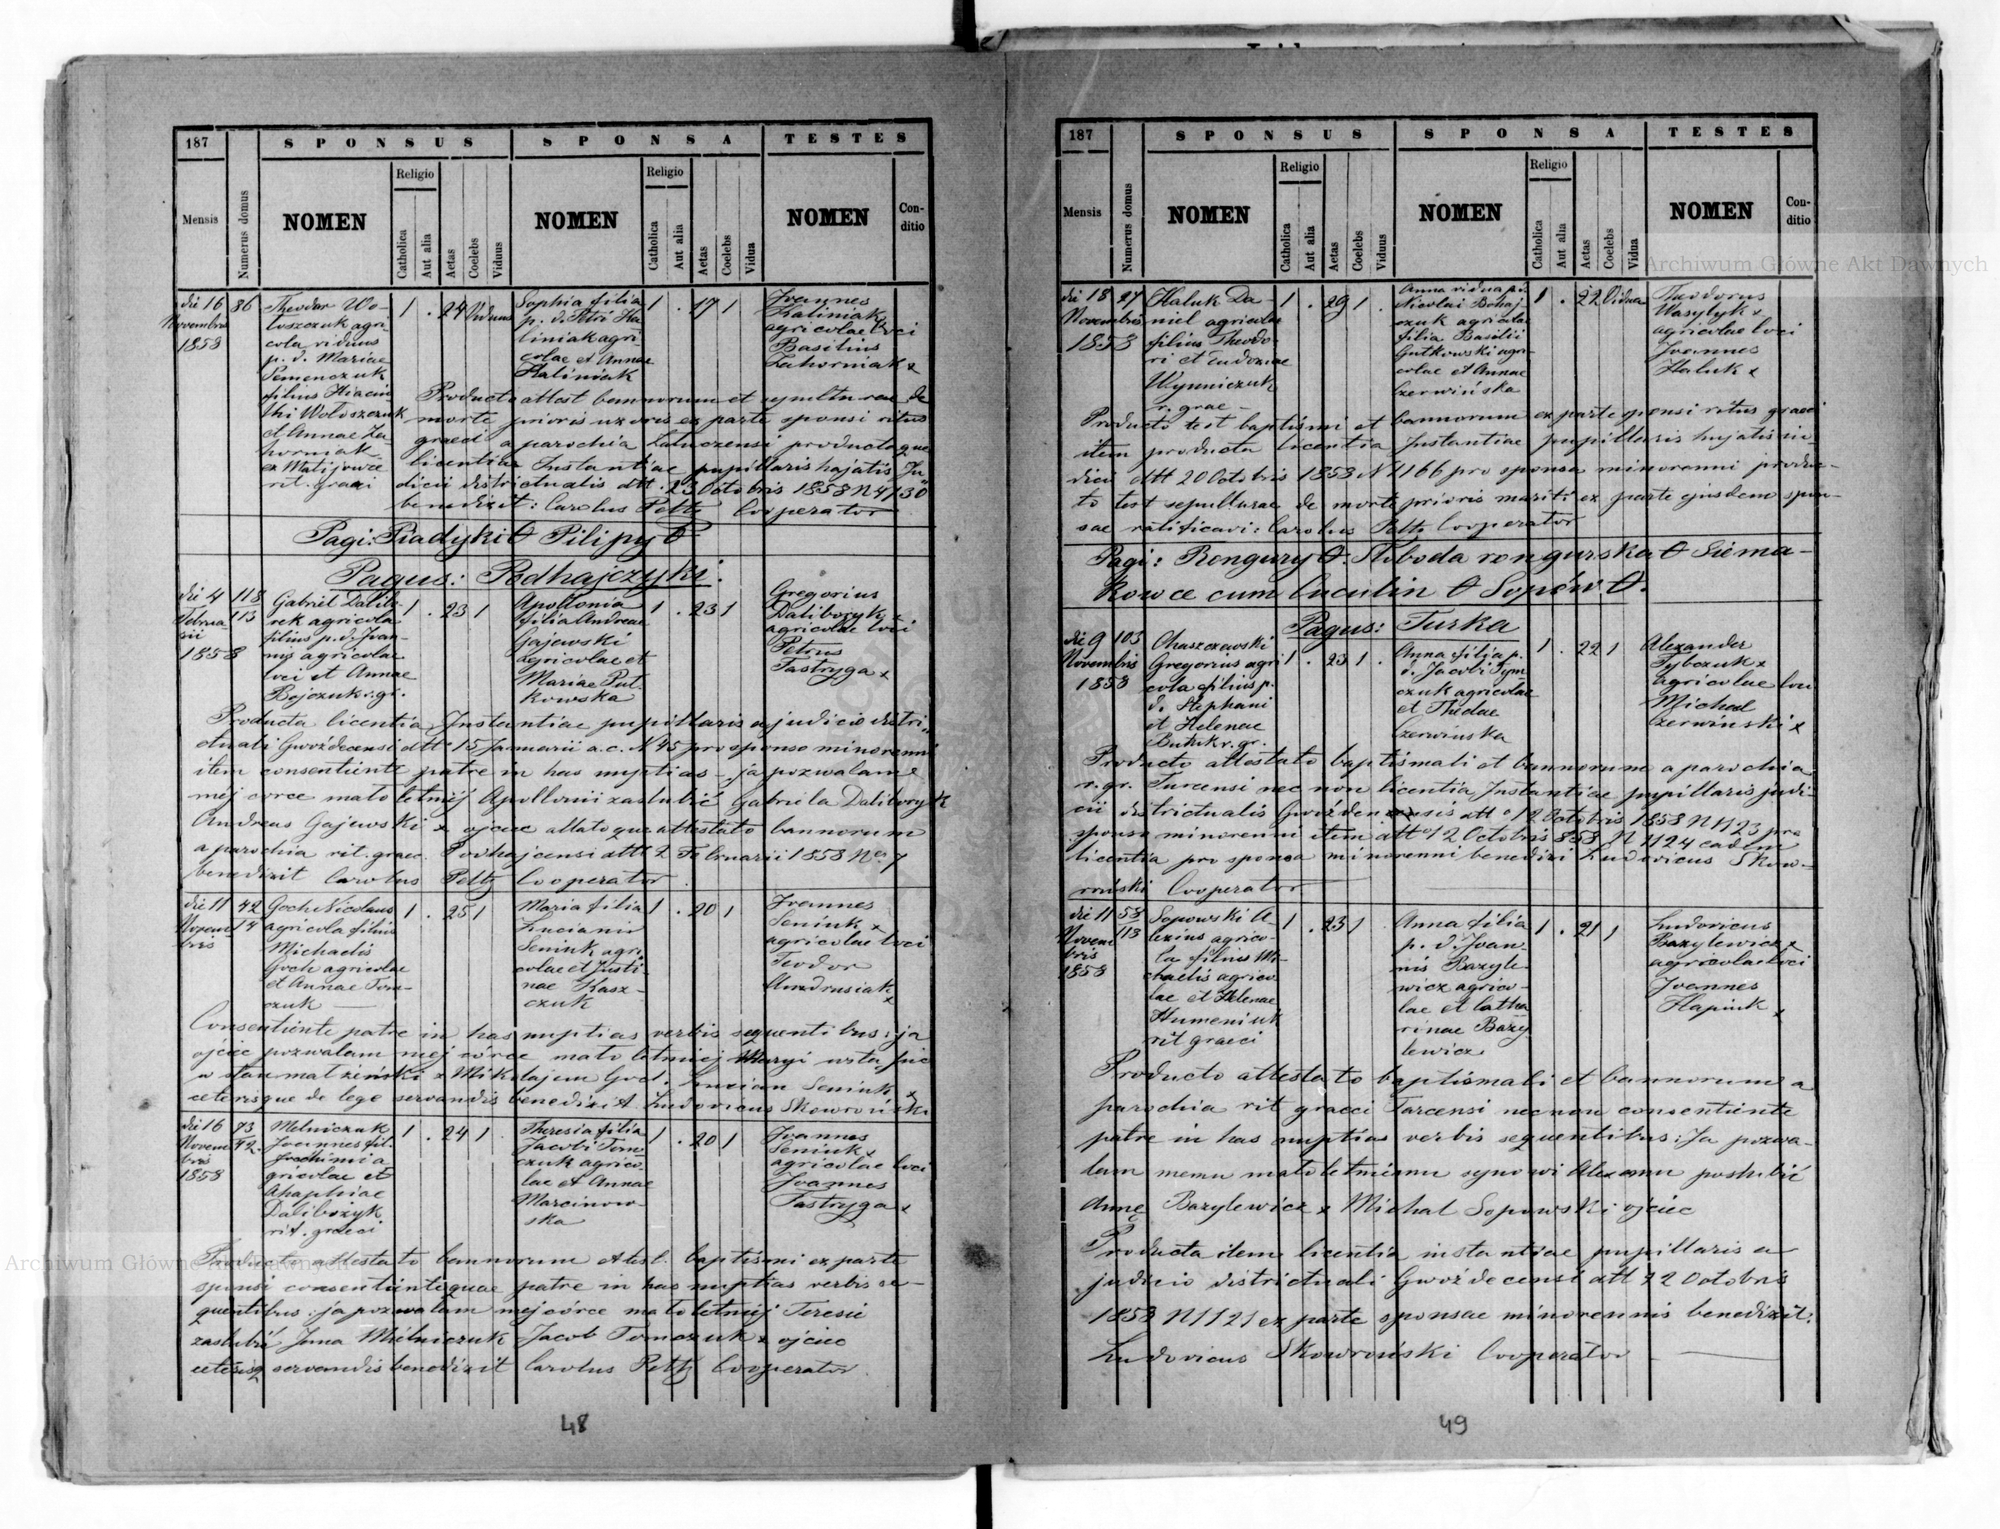 187
SPONSUS
SPONSA
TESTES
Mensis
Numerus domus
NOMEN
Religio
Catholica
Aut alia
Aetas
Coelebs
Viduus
NOMEN
Religio
Catholica
Aut alia
Aetas
Coelebs
Vidua
NOMEN
Con-
ditio
die 16
Novembris
1858
86
Theodor Wo-
łoszczuk agri
cola viduus
p. d. Mariae
Semenczuk
filius Hiacin
thi Wołoszczuk
et Annae Za
horniak
ex Matijowce
rit. graeci
1 . 24 Viduus
Sophia filia
p. d. Petri Ha
liniak agri
colae et Annae
Haliniak
1 . 17 1
Joannes
Haliniak
agricolae loci
Basilius
Zahorniak x
Producto attest bannorum et sepulturae de
morte prioris uxoris ex parte sponsi ritus
graeci a parochia productaque
licentia Instantiae pupillaris hajatis Ju
dicii districtualis dtt. 23 Octobris 1858 N 4130
benedixit: Carolus Petz Cooperator
Pagi: Piadyki O Pilipy O
Pagus: Podhajczyki.
die 4
Februa
rii
1858
118
113
Gabriel Dalib
rek agricola
filius p. d. Joan-
nis agricolae
loci et Annae
Bojczuk r. gr.
1 . 23 1
Apollonia
filia Andreae
Gajewski
agricolae et
Mariae Put
kowska
1 . 23 1
Gregorius
Daliboryk x
agricolae loci
Petrus
Pastryga x
Producta licentia Instantiae pupillaris a judicio distri
ctuali Gwoździecensi dtt 15 Januarii a.c. N 45 pro sponso minorenni
item consentiente patre in has nuptias - ja pozwalam
mej córce małoletniéj Apollonii zaślubić Gabriela Daliboryk
Andreas Gajewski x ojciec allatoque attestato bannorum
a parochia rit. graec. Podhajcensi dtt 2 Februarii 1858 No 7
benedixit Carolus Petz Cooperator
die 11
Novem
bris
42
14
Goch Nicolaus
agricola filius
Michaelis
Goch agricolae
et Annae Tom-
czuk
1 . 25 1
Maria filia
Luciani
Seniuk agri
colae et Justi-
nae Kasz-
czuk
1 . 20 1
Joannes
Seniuk x
agricolae loci
Teodor
Andrusiak
x
Consentiente patre in has nuptias verbis sequentibus: ja
ojciec pozwalam mej córce małoletniej Maryi wstąpić
w stan małżeński z Mikołajem Goch. Lucian Seniuk x
ceterisque de lege servandis benedixit Ludovicus Skowroński
die 16
Novem
bris
1858
73
42.
Melniczuk
Joannes fil.
Jochimi a
gricolae et
Ahaphiae
Daliborzyk
rit. graeci
1 . 24 1
Theresia filia
Jacobi Tom
czuk agrico-
lae et Annae
Marcinow-
ska
1 . 20 1
Joannes
Seniuk x
agricolae loci
Joannes
Pastryga x
Producto attestato bannorum et test. baptismi ex parte
sponsi consentienteque patre in has nuptias verbis se-
quentibus: ja pozwalam mej córce małoletniéj Teresie
zaslubić Jana Mielniczuk Jacob Tomczuk x ojciec
ceterisq servandis benedixit Carolus Petz Cooperator
48
187
SPONSUS
SPONSA
TESTES
Mensis
Numerus domus
NOMEN
Religio
Catholica
Aut alia
Aetas
Coelebs
Viduus
NOMEN
Religio
Catholica
Aut alia
Aetas
Coelebs
Vidua
NOMEN
Con-
ditio
die 18
Novembris
1858
27
Haluk Da-
niel agricola
filius Theodo-
ri et Eudoxiae
Wynniczuk
r. grae -
1 . 29 1 .
Anna vidua p. d.
Nicolai Bohaj-
czuk agricolae
filia Basilii
Gutkowski agri-
colae et Annae
Czerwińska
1 . 22 Vidua
Theodorus
Wasylyk x
agricolae loci
Joannes
Haluk x
Producto test baptismi et bannorum ex parte sponsi ritus graeci
item producta licentia Instantiae pupillaris hujatis ju-
dicii dtt 20 Octobris 1858 N 1166 pro sponsa minorenni produc-
to test sepulturae de morte prioris mariti ex parte ejusdem spon-
sae ratificavi: Carolus Petz Cooperator
Pagi: Rongury O. Słoboda rongurska O Siema-
kowce cum Cuculin O Sopów O.
Pagus: Turka
die 9
Novembris
1858
103
Chaszczowski
Gregorius agri
cola filius p.
d. Stephani
et Helenae
r. gr.
1 . 23 1 .
Anna filia p.
d. Jacobi Tym
czuk agricolae
et Theclae
Czerwinska
1 . 22 1
Alexander
Tybczuk x
agricolae loci
Michael
Czerwinski x
Producto attestato baptismali et bannorum a parochia
r. gr. Turcensi nec non licentia Instantiae pupillaris judi-
cii districtualis Gwoździecensis dtt 12 Octobris 1858 N 1123 pro
sponso minorenni item dtt 12 Octobris 858 N 1124 eadem
licentia pro sponsa minorenni benedixi Ludovicus Skow-
roński Cooperator
die 11
Novem
bris
1858
58
113
Sopowski A
lexius agrico-
la filius Mi-
chaelis agrico-
lae et Helenae
Humeniuk
rit graeci
1 . 23 1
Anna filia
p. d. Joan-
nis Bazyle-
wicz agrico-
lae et Catha
rinae Bazy
lewicz
1 . 21 1
Ludovicus
Bazylewicz x
agricolae loci
Joannes
Hapiuk x
Producto attestato baptismali et bannorum a
parochia rit graeci Turcensi necnon consentiente
patre in has nuptias verbis sequentibus: Ja pozwa-
lam memu małoletniemu synowi Alexemu poslubić
Annę Bazylewicz x Michał Sopowski ojciec
Producta item licentia instantiae pupillaris a
judicio districtuali Gwoździecensi dtt 22 Octobris
1858 N 1121 ex parte sponsae minorennis benedixit:
Ludovicus Skowroński Cooperator
49
Archiwum Główne Akt Dawnych
Archiwum Główne Akt Dawnych